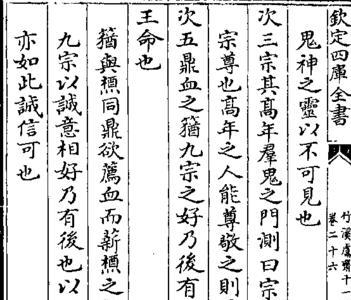 欽定四庫全書
竹溪鬳齋十一
卷二十六
鬼神之靈以不可見也
次三宗其髙年羣鬼之門測曰宗
宗尊也髙年之人能尊敬之則
次五鼎血之蕕九宗之好乃後有
王命也
蕕與槱同鼎欲薦血而薪槱之
九宗以誠意相好乃有後也以
亦如此誠信可也